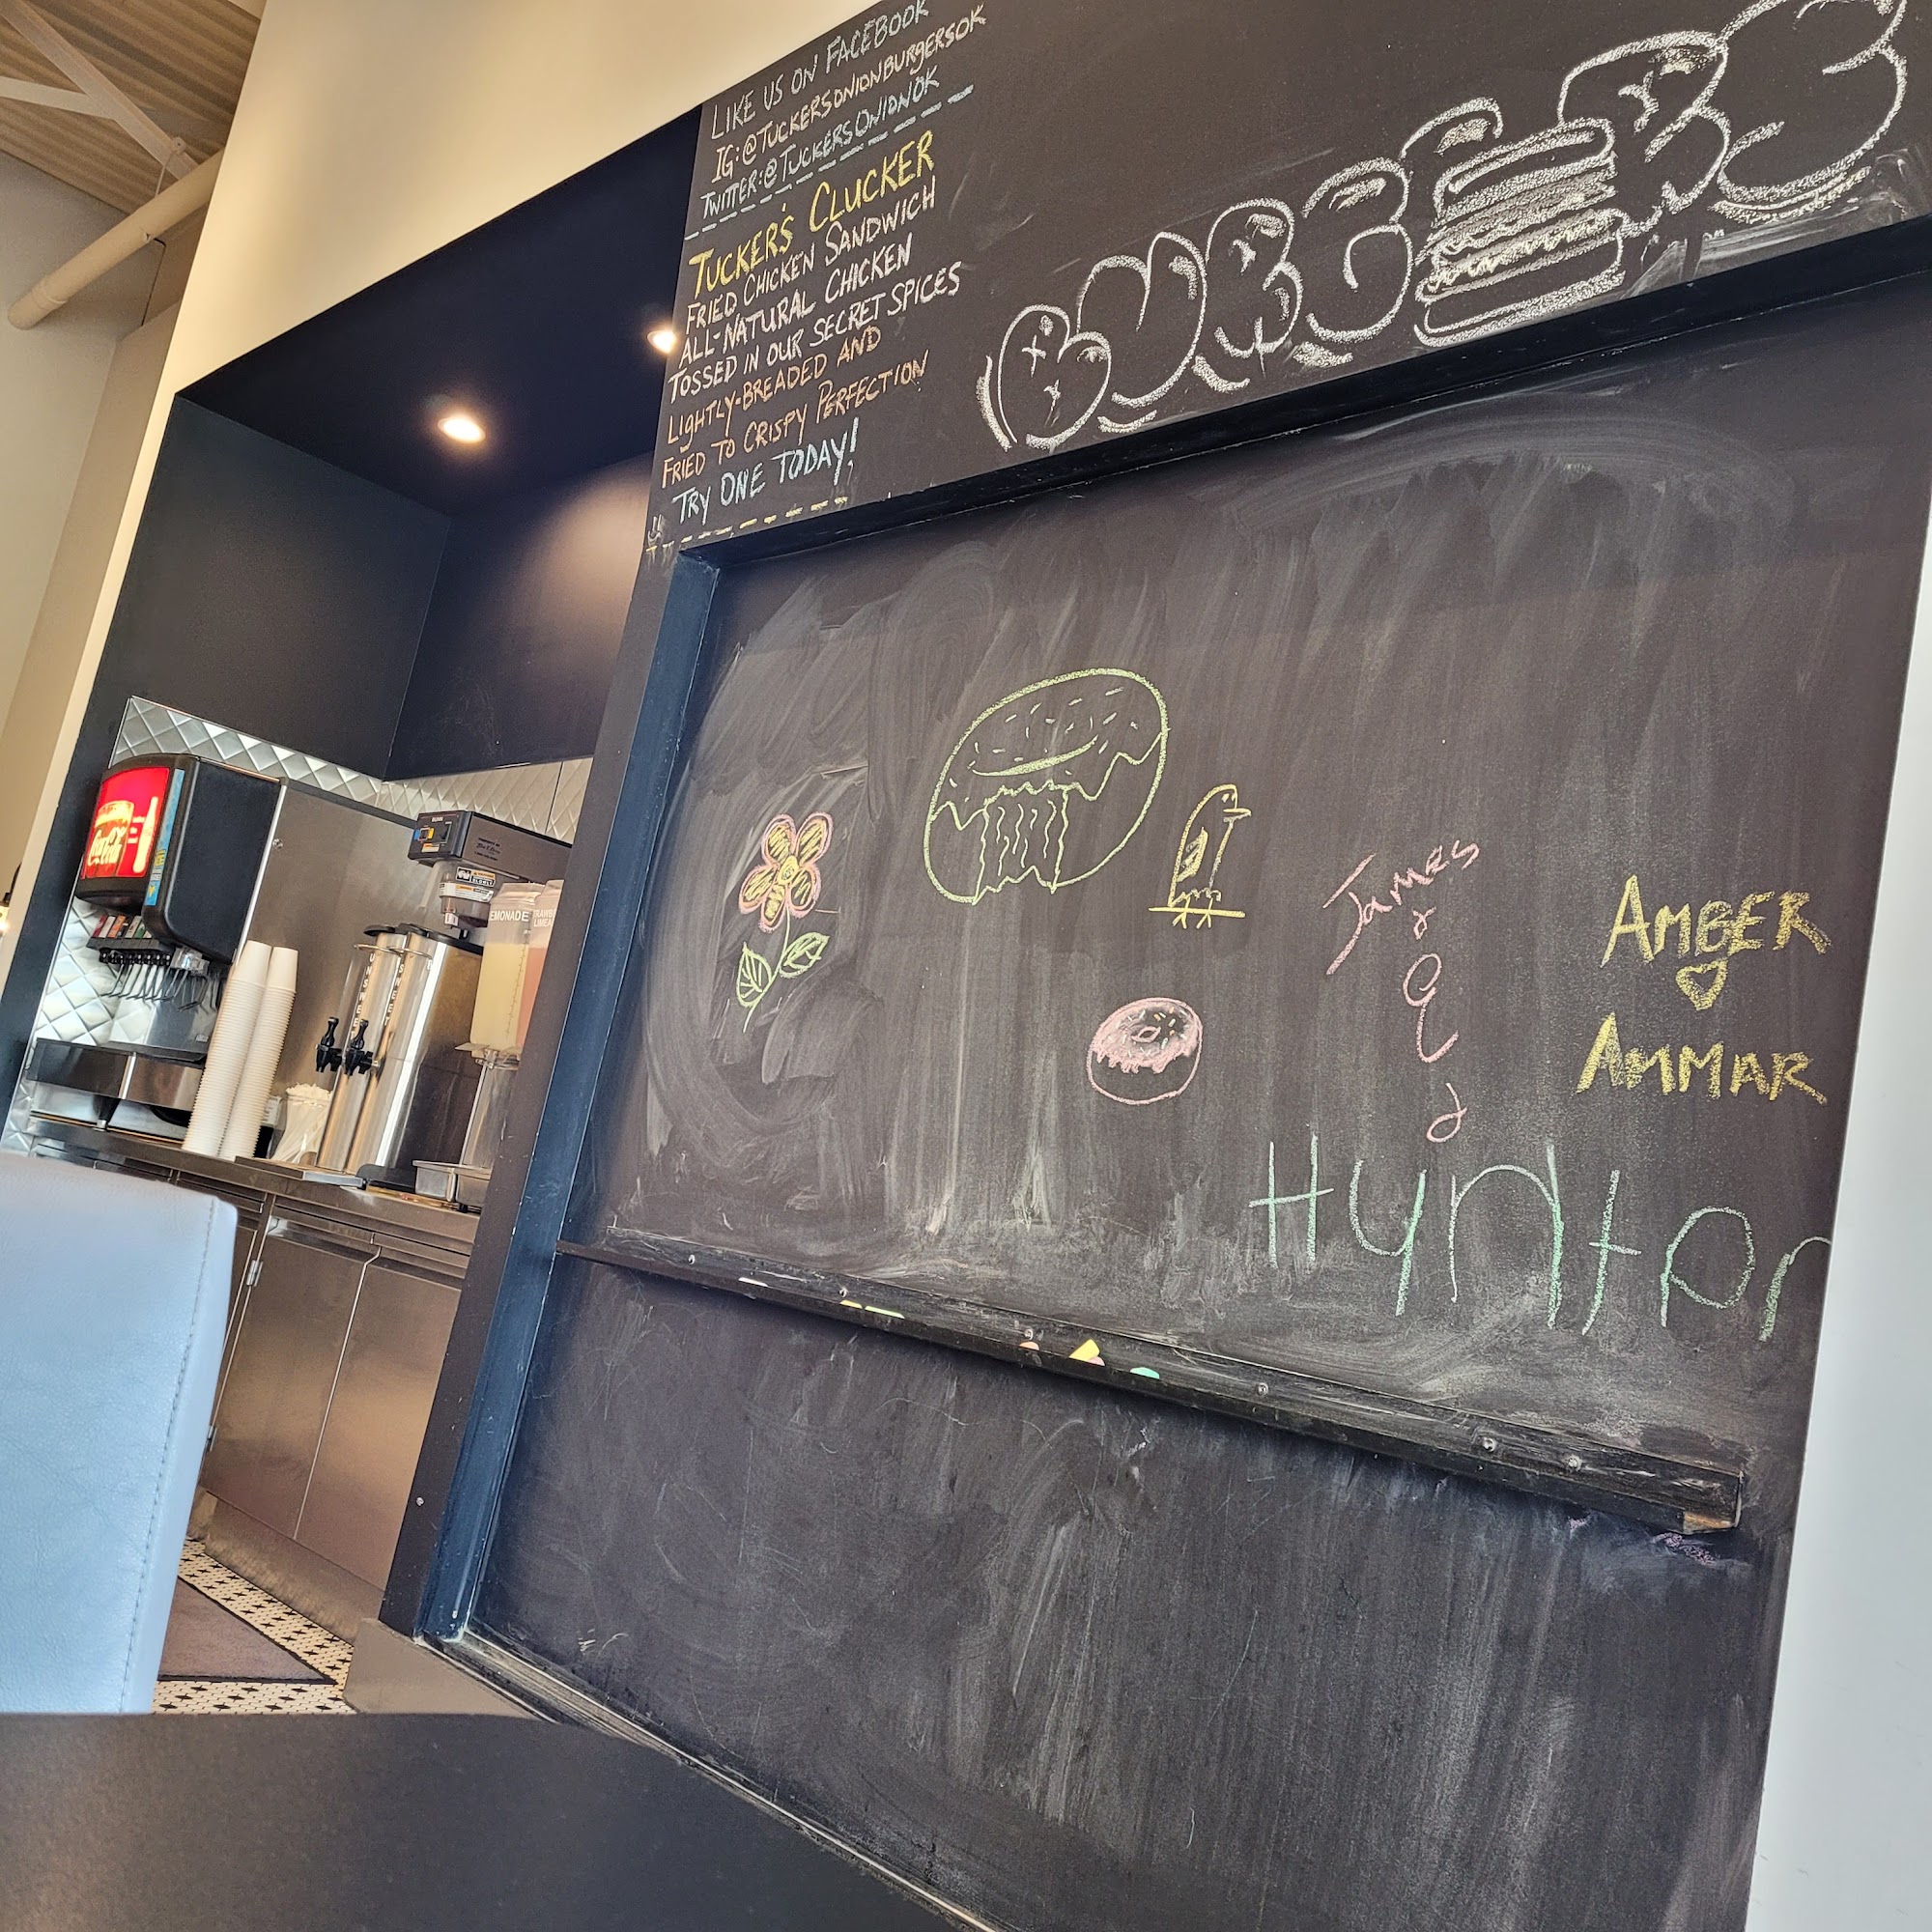 LIKE US ON FACEBOOK
IG:@TUCKERSONIONBURGERSOK
TWITTER:@TUCKERSONIONOK
TUCKER'S CLUCKER
FRIED CHICKEN SANDWICH
ALL-NATURAL CHICKEN
TOSSED IN OUR SECRET SPICES
LIGHTLY-BREADED AND
FRIED TO CRISPY PERFECTION
TRY ONE TODAY!
BURGERS
Coca-Cola
LEMONADE
James
&
AMBER
AMMAR
Hynter